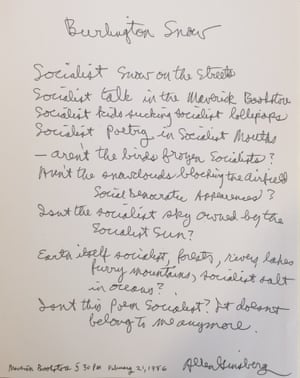 Burlington Snow
Socialist snow on the streets
Socialist talk in the Maverick Bookstore
Socialist kids sucking socialist lollipops
Socialist Poetry in Socialist Mouths
— aren't the birds frozen Socialists?
Aren't the snowclouds blocking the airfield
Social Democratic Appearances?
Isn't the socialist sky owned by the
Socialist Sun?
Earth itself socialist, forests, rivers, lakes
furry mountains, socialist salt
in oceans?
Isn't this Poem Socialist? It doesn't
belong to me anymore.
Allen Ginsberg
Maverick Bookstore 5:30 PM February 21, 1986